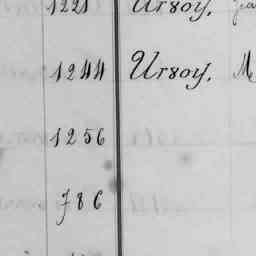 1221 Ursoy.
1244 Ursoy. M
1256
786